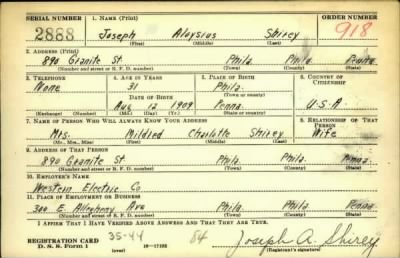 SERIAL NUMBER 1. NAME (Print) ORDER NUMBER
2888 Joseph Aloysius Shirey 918
(First) (Middle) (Last)
2. ADDRESS (Print)
890 Granite St. Phila. Phila. Penna
(Number and street or R. F. D. number) (Town) (County) (State)
3. TELEPHONE 4. AGE IN YEARS 5. PLACE OF BIRTH 6. COUNTRY OF CITIZENSHIP
None 31 Phila.
DATE OF BIRTH (Town or county)
Aug 12 1909 Penna. U.S.A
(Exchange) (Number) (Mo.) (Day) (Yr.) (State or country)
7. NAME OF PERSON WHO WILL ALWAYS KNOW YOUR ADDRESS 8. RELATIONSHIP OF THAT PERSON
Mrs. Mildred Charlotte Shirey Wife
(Mr., Mrs., Miss) (First) (Middle) (Last)
9. ADDRESS OF THAT PERSON
890 Granite St Phila. Phila. Penna
(Number and street or R. F. D. number) (Town) (County) (State)
10. EMPLOYER'S NAME
Western Electric Co
11. PLACE OF EMPLOYMENT OR BUSINESS
E. Allegheny Ave Phila. Phila. Penna
(Number and street or R. F. D. number) (Town) (County) (State)
I AFFIRM THAT I HAVE VERIFIED ABOVE ANSWERS AND THAT THEY ARE TRUE.
REGISTRATION CARD 35-44 84 Joseph A. Shirey
D. S. S. Form 1 (over) 16—17105 (Registrant's signature)